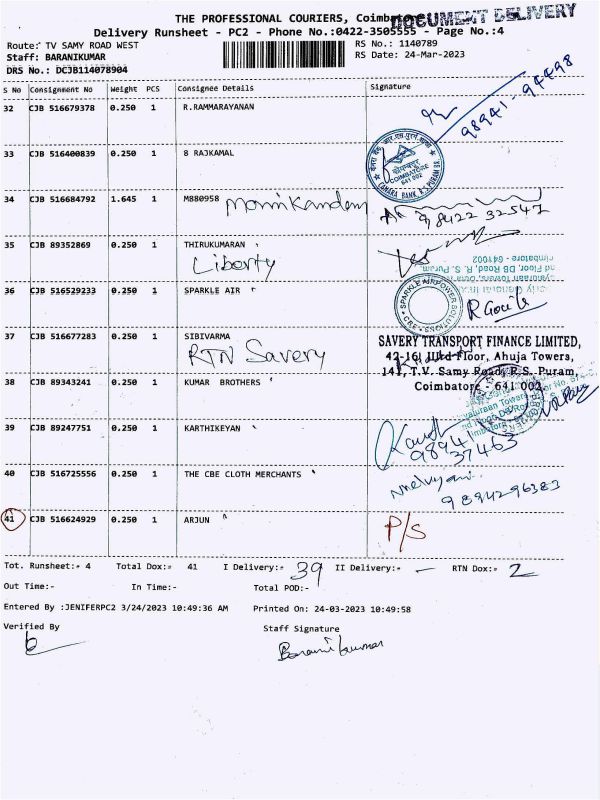 THE PROFESSIONAL COURIERS, Coimbatore
DOCUMENT DELIVERY
Delivery Runsheet - PC2 - Phone No.:0422-3505555 - Page No.:4
Route: TV SAMY ROAD WEST
RS No.: 1140789
Staff: BARANIKUMAR
RS Date: 24-Mar-2023
DRS No.: DCJB114078904
S No Consignment No Weight PCS Consignee Details Signature
98941-94498
32 CJB 516679378 0.250 1 R.RAMMARAYANAN
33 CJB 516400839 0.250 1 8 RAJKAMAL
COIMBATORE
641 002
CANARA BANK, R.S.PURAM BR.
34 CJB 516684792 1.645 1 M880958 Manikandan
98422 32547
35 CJB 89352869 0.250 1 THIRUKUMARAN
Liberty
nd Floor, DB Road, R. S. Puram,
oimbatore - 641002
36 CJB 516529233 0.250 1 SPARKLE AIR
SPARKLE AIRPOWER SOLUTIONS
CBE
37 CJB 516677283 0.250 1 SIBIVARMA
RTN Savery
SAVERY TRANSPORT FINANCE LIMITED,
42-16, IIIrd Floor, Ahuja Towers,
141, T.V. Samy Road, R.S. Puram,
Coimbatore - 641 002.
38 CJB 89343241 0.250 1 KUMAR BROTHERS
39 CJB 89247751 0.250 1 KARTHIKEYAN
98941
37463
40 CJB 516725556 0.250 1 THE CBE CLOTH MERCHANTS
9894296383
41 CJB 516624929 0.250 1 ARJUN
P/S
Tot. Runsheet:- 4 Total Dox:- 41 I Delivery:- 39 II Delivery:- — RTN Dox:- 2
Out Time:- In Time:- Total POD:-
Entered By :JENIFERPC2 3/24/2023 10:49:36 AM Printed On: 24-03-2023 10:49:58
Verified By Staff Signature
Baranikumar